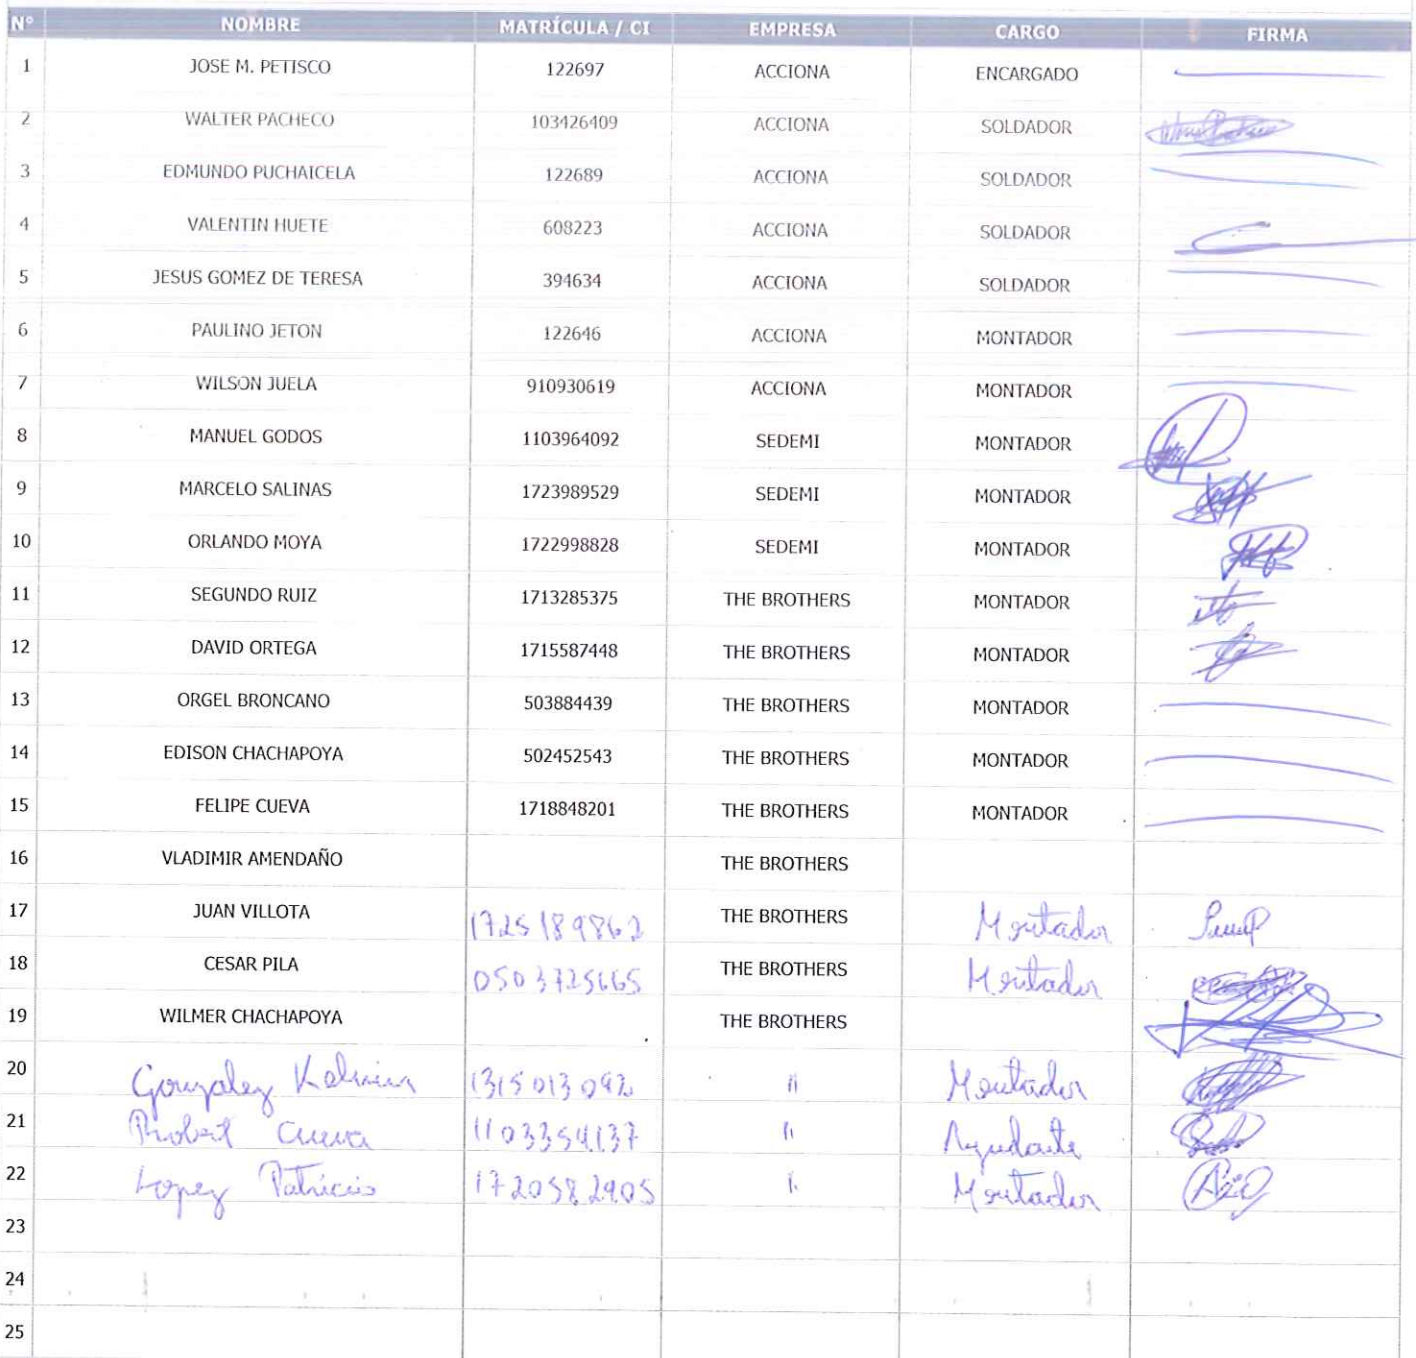 N° NOMBRE MATRÍCULA / CI EMPRESA CARGO FIRMA
1 JOSE M. PETISCO 122697 ACCIONA ENCARGADO
2 WALTER PACHECO 103426409 ACCIONA SOLDADOR
3 EDMUNDO PUCHAICELA 122689 ACCIONA SOLDADOR
4 VALENTIN HUETE 608223 ACCIONA SOLDADOR
5 JESUS GOMEZ DE TERESA 394634 ACCIONA SOLDADOR
6 PAULINO JETON 122646 ACCIONA MONTADOR
7 WILSON JUELA 910930619 ACCIONA MONTADOR
8 MANUEL GODOS 1103964092 SEDEMI MONTADOR
9 MARCELO SALINAS 1723989529 SEDEMI MONTADOR
10 ORLANDO MOYA 1722998828 SEDEMI MONTADOR
11 SEGUNDO RUIZ 1713285375 THE BROTHERS MONTADOR
12 DAVID ORTEGA 1715587448 THE BROTHERS MONTADOR
13 ORGEL BRONCANO 503884439 THE BROTHERS MONTADOR
14 EDISON CHACHAPOYA 502452543 THE BROTHERS MONTADOR
15 FELIPE CUEVA 1718848201 THE BROTHERS MONTADOR
16 VLADIMIR AMENDAÑO THE BROTHERS
17 JUAN VILLOTA 1725189862 THE BROTHERS Montador
18 CESAR PILA 0503725665 THE BROTHERS Montador
19 WILMER CHACHAPOYA THE BROTHERS
20 Gonzalez 1315013092 " Montador
21 Robert Cueva 1103354137 " Ayudante
22 Lopez Patricio 1720582905 " Montador
23
24
25